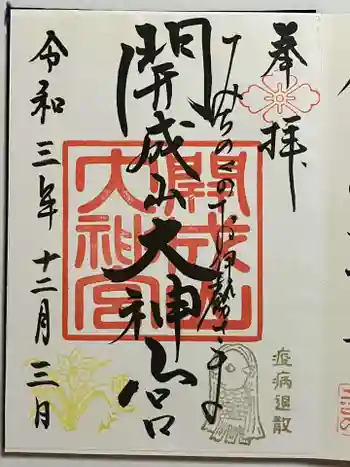 奉拝
みちのくのお伊勢さま
開成山大神宮
開成山
大神宮
令和三年十二月三日
疫病退散